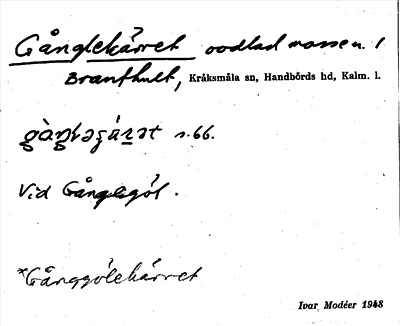 Gånglekärret oodlad mosse n. 1
Branthult, Kråksmåla sn, Handbörds hd, Kalm. l.
s. 66.
Vid Gånglegöl.
*Gånggölekärret
Ivar Modéer 1943